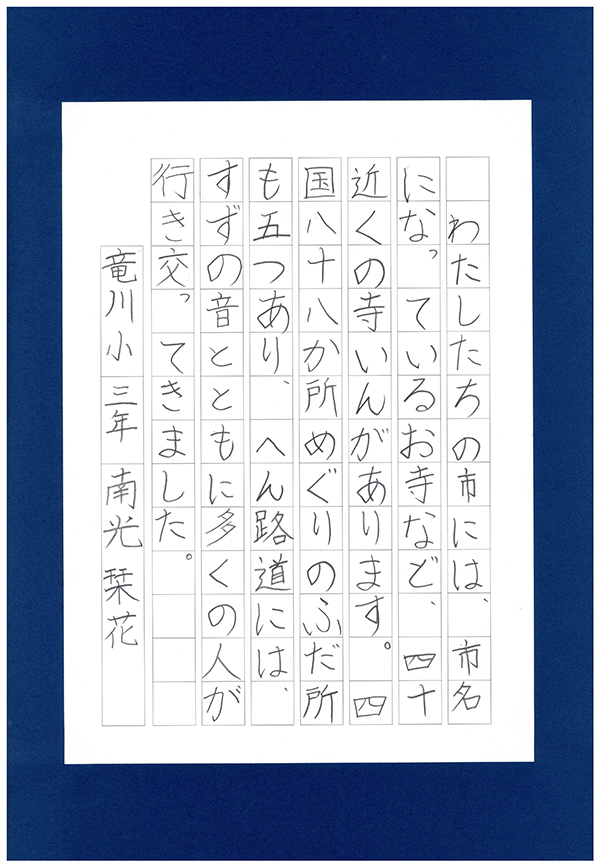 わたしたちの市には、市名
になっているお寺など、四十
近くの寺いんがあります。四
国八十八か所めぐりのふだ所
も五つあり、へん路道には、
すずの音とともに多くの人が
行き交ってきました。
竜川小 三年 南光 栞花